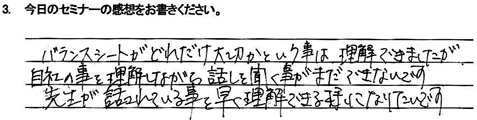 3. 今日のセミナーの感想をお書きください。
バランスシートがどれだけ大切かという事は理解できましたが
自社の事を理解しながら話しを聞く事がまだできないです
先生が話されている事を早く理解できる様になりたいです